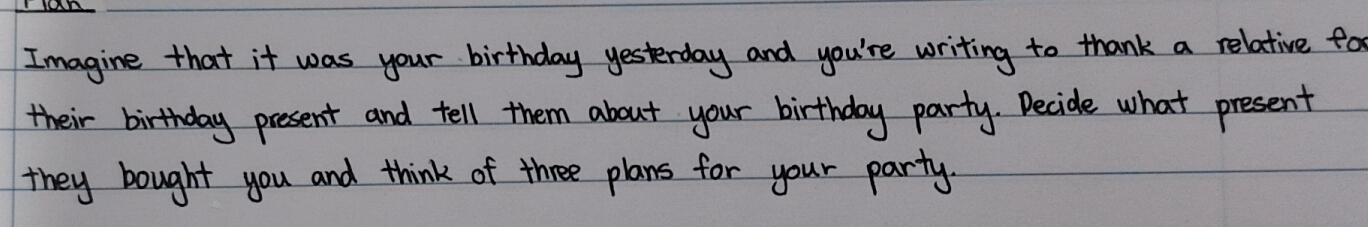 Plan
Imagine that it was your birthday yesterday and you're writing to thank a relative for
their birthday present and tell them about your birthday party. Decide what present
they bought you and think of three plans for your party.